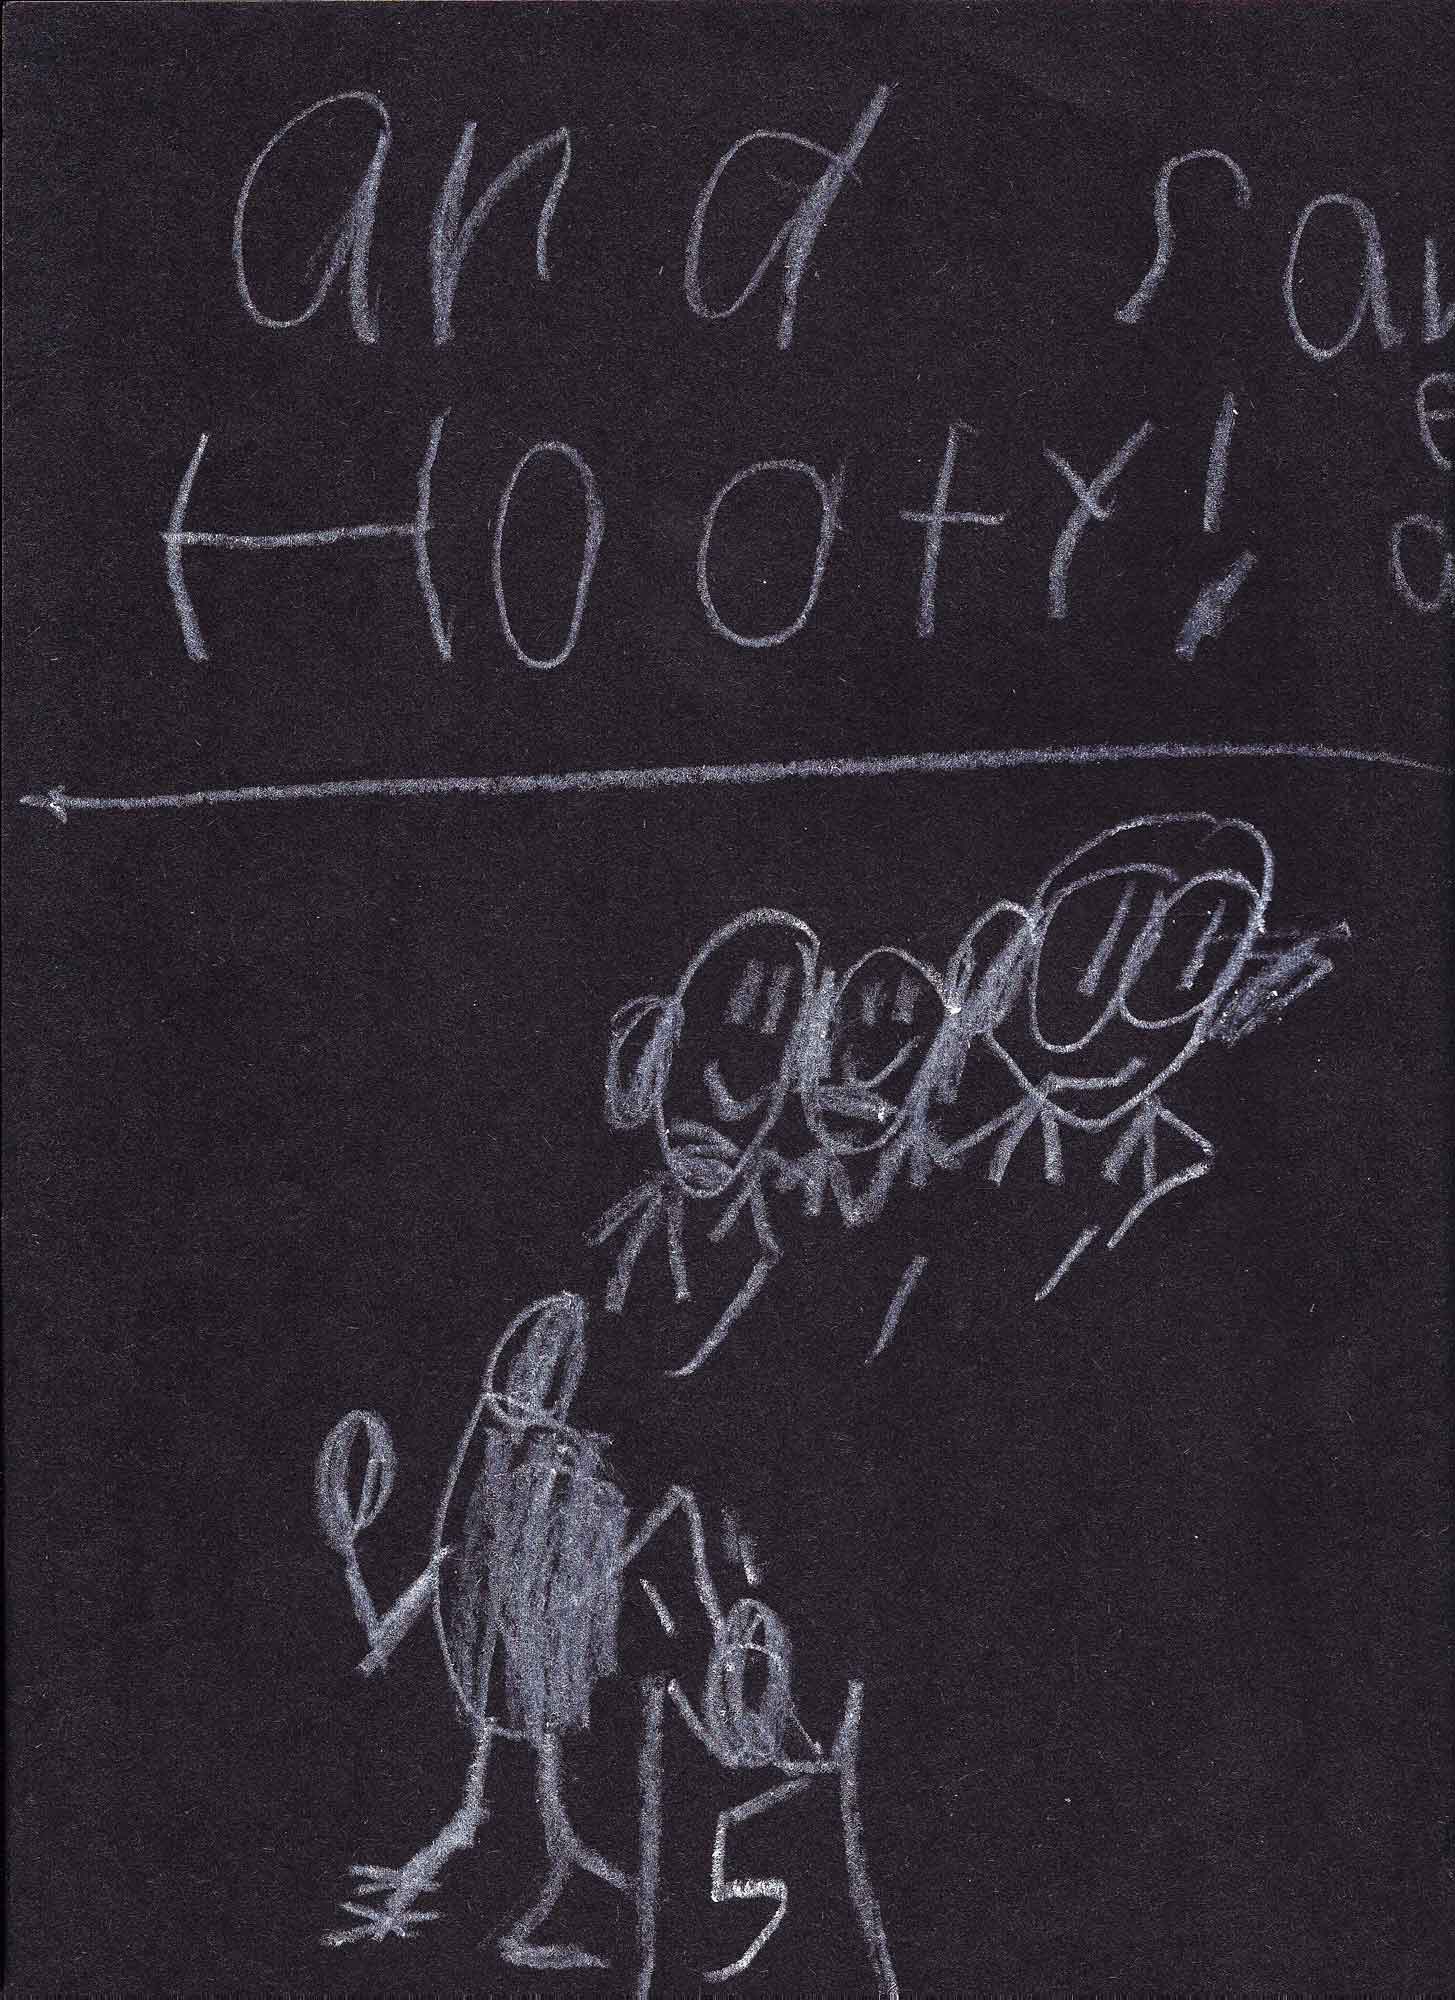 and
HOOtY!
5